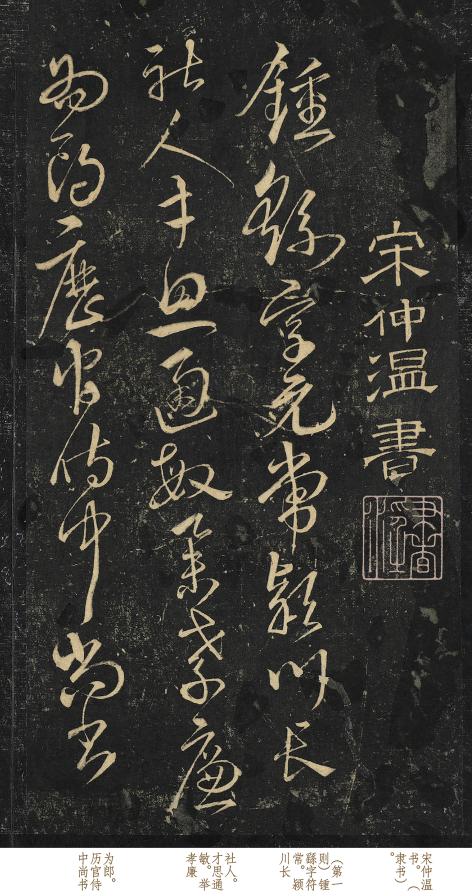 宋仲温書
鍾繇字元常潁川長
社人才思通敏舉孝廉
為郎歷官侍中尚書
宋仲温
书。（
隶书）
。
（第
则）锺
繇字符
常。颖
川长
社人。
才思通
敏。举
孝廉
为郎。
历官侍
中尚书